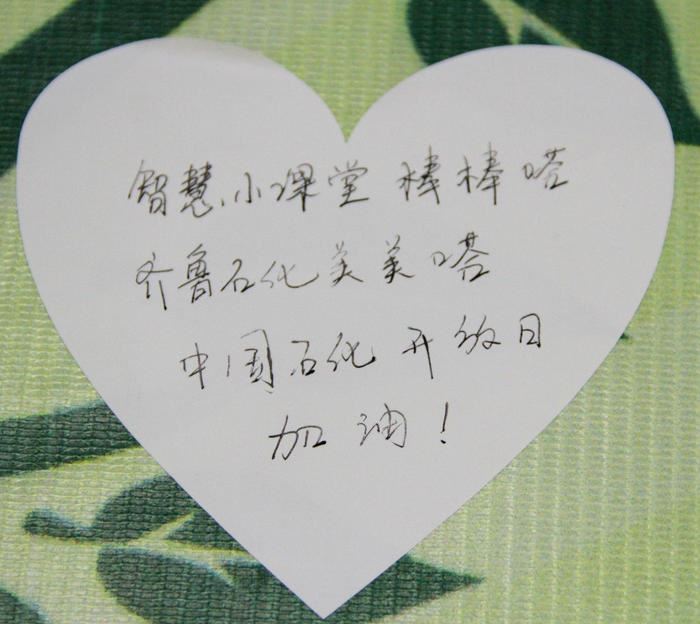 智慧小课堂 棒棒嗒
齐鲁石化美美嗒
中国石化开放日
加油！